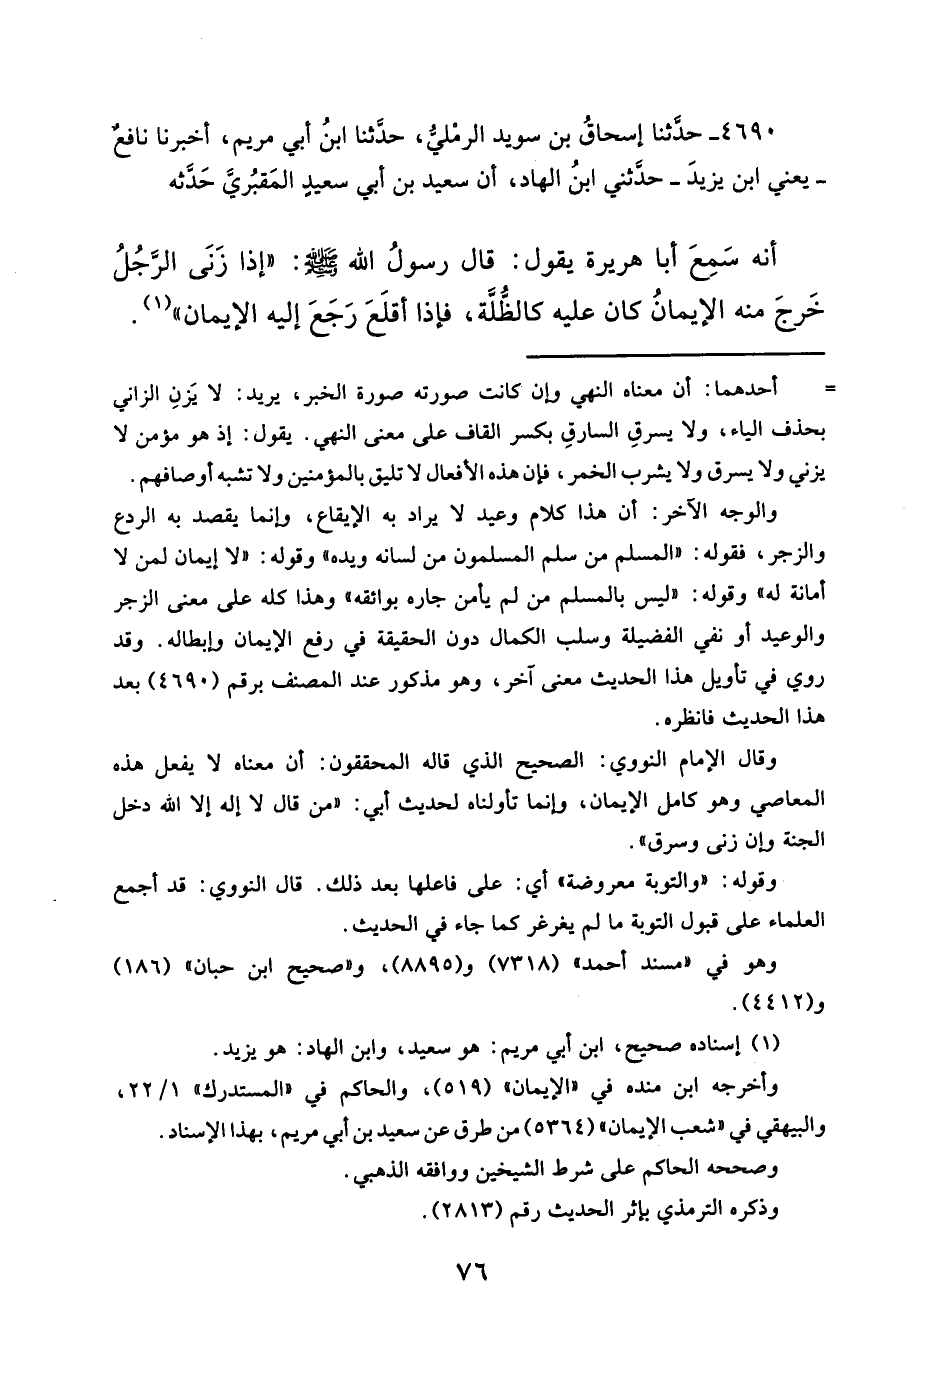 ٤٦٩٠ـ حدَّثنا إسحاقُ بن سويد الرمْليُّ، حدَّثنا ابنُ أبي مريم، أخبرنا نافعٌ
ـ يعني ابن يزيدَ ـ حدَّثني ابنُ الهاد، أن سعيد بن أبي سعيدٍ المَقبُريَّ حَدَّثه
أنه سَمِعَ أبا هريرة يقول: قال رسولُ الله ﷺ: «إذا زَنَى الرَّجُلُ
خَرجَ منه الإيمانُ كان عليه كالظُّلَّة، فإذا أقلَعَ رَجَعَ إليه الإيمان»(١).
= أحدهما: أن معناه النهي وإن كانت صورته صورة الخبر، يريد: لا يَزنِ الزاني
بحذف الياء، ولا يسرقِ السارقِ بكسر القاف على معنى النهي. يقول: إذ هو مؤمن لا
يزني ولا يسرق ولا يشرب الخمر، فإن هذه الأفعال لا تليق بالمؤمنين ولا تشبه أوصافهم.
والوجه الآخر: أن هذا كلام وعيد لا يراد به الإيقاع، وإنما يقصد به الردع
والزجر، فقوله: «المسلم من سلم المسلمون من لسانه ويده» وقوله: «لا إيمان لمن لا
أمانة له» وقوله: «ليس بالمسلم من لم يأمن جاره بوائقه» وهذا كله على معنى الزجر
والوعيد أو نفي الفضيلة وسلب الكمال دون الحقيقة في رفع الإيمان وإبطاله. وقد
روي في تأويل هذا الحديث معنى آخر، وهو مذكور عند المصنف برقم (٤٦٩٠) بعد
هذا الحديث فانظره.
وقال الإمام النووي: الصحيح الذي قاله المحققون: أن معناه لا يفعل هذه
المعاصي وهو كامل الإيمان، وإنما تأولناه لحديث أبي: «من قال لا إله إلا الله دخل
الجنة وإن زنى وسرق».
وقوله: «والتوبة معروضة» أي: على فاعلها بعد ذلك. قال النووي: قد أجمع
العلماء على قبول التوبة ما لم يغرغر كما جاء في الحديث.
وهو في «مسند أحمد» (٧٣١٨) و(٨٨٩٥)، و«صحيح ابن حبان» (١٨٦)
و(٤٤١٢).
(١) إسناده صحيح، ابن أبي مريم: هو سعيد، وابن الهاد: هو يزيد.
وأخرجه ابن منده في «الإيمان» (٥١٩)، والحاكم في «المستدرك» ١/ ٢٢،
والبيهقي في «شعب الإيمان» (٥٣٦٤) من طرق عن سعيد بن أبي مريم، بهذا الإسناد.
وصححه الحاكم على شرط الشيخين ووافقه الذهبي.
وذكره الترمذي بإثر الحديث رقم (٢٨١٣).
٧٦